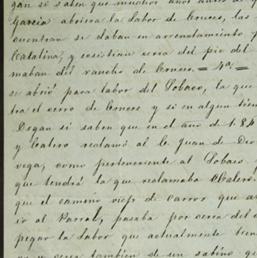 gan si saben que muchos años antes de q
Garcia abriera la labor de Coneco, las
cuentran se daban en arrendamiento p
Catalina, y ecsistian cerca del pie del
maban del rancho de Coneco. = 4ª =
se abrió para labor del Tobaco, la que
tra el cerro de Coneco y si en algun tiem
Digan si saben que en el año de 184
y Calero reclamó al C. Juan de Dio
vega, como perteneciente al Tobaco
que tendrá la que reclamaba Calero
que el camino viejo de carros que a
ir al Parral, pasaba por cerca del o
pegar la labor que actualmente tien
y cerca tambien de un sabino q